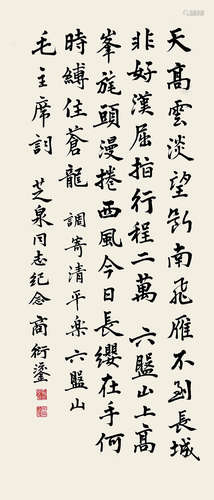 天高雲淡望斷南飛雁不到長城
非好漢屈指行程二萬 六盤山上高
峯旄頭漫捲西風今日長纓在手何
時縛住蒼龍 調寄清平樂六盤山
毛主席詞 芝泉同志紀念 商衍鎏